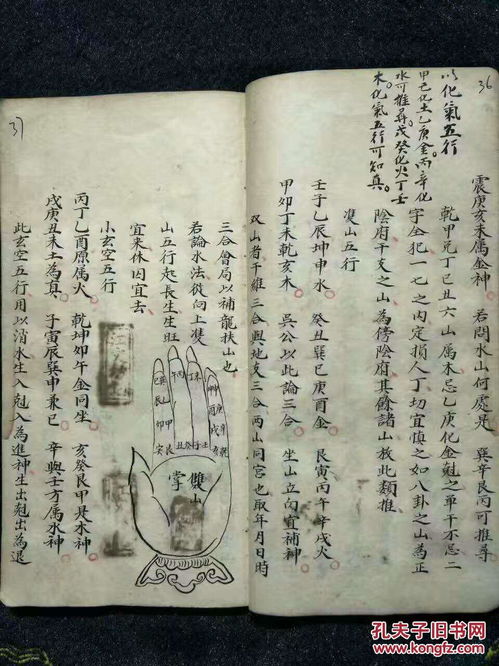 36
以化氣五行
甲己化土乙庚金丙辛化
水可推尋戊癸化火丁壬
木化氣五行可知真
震庚亥未属金神 若問水山何处是 巽辛艮丙可推尋
乾甲兑丁巳丑六山属木忌乙庚化金尅之單干不忌二
字全犯一七之内定損人丁切宜慎之如八卦之山為正
陰府干支之山為傍陰府其餘諸山放此類推
雙山五行
壬子乙辰坤申水 癸丑巽巳庚酉金 艮寅丙午辛戌火
甲卯丁未乾亥木 吳公以此論三合 坐山立向宜補神
双山者干維三合與地支三合两山同宫也取年月日時
37
三合會局以補龍扶山也
若論水法從向上雙
山五行起長生生旺
宜来休囚宜去
小玄空五行
丙丁乙酉原属火 乾坤卯午金同坐 亥癸艮甲是木神
戌庚丑未土為真 子寅辰巽申兼巳 辛與壬方属水神
此玄空五行用以消水生入尅入為進神生出尅出為退
雙山
掌
孔夫子旧书网
www.kongfz.com